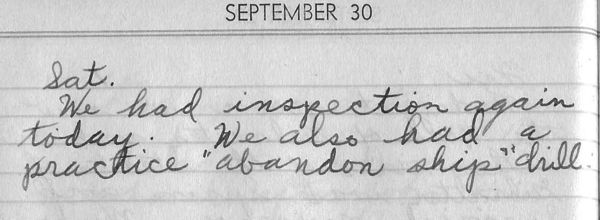 SEPTEMBER 30
Sat.
We had inspection again
today. We also had a
practice "abandon ship" drill.